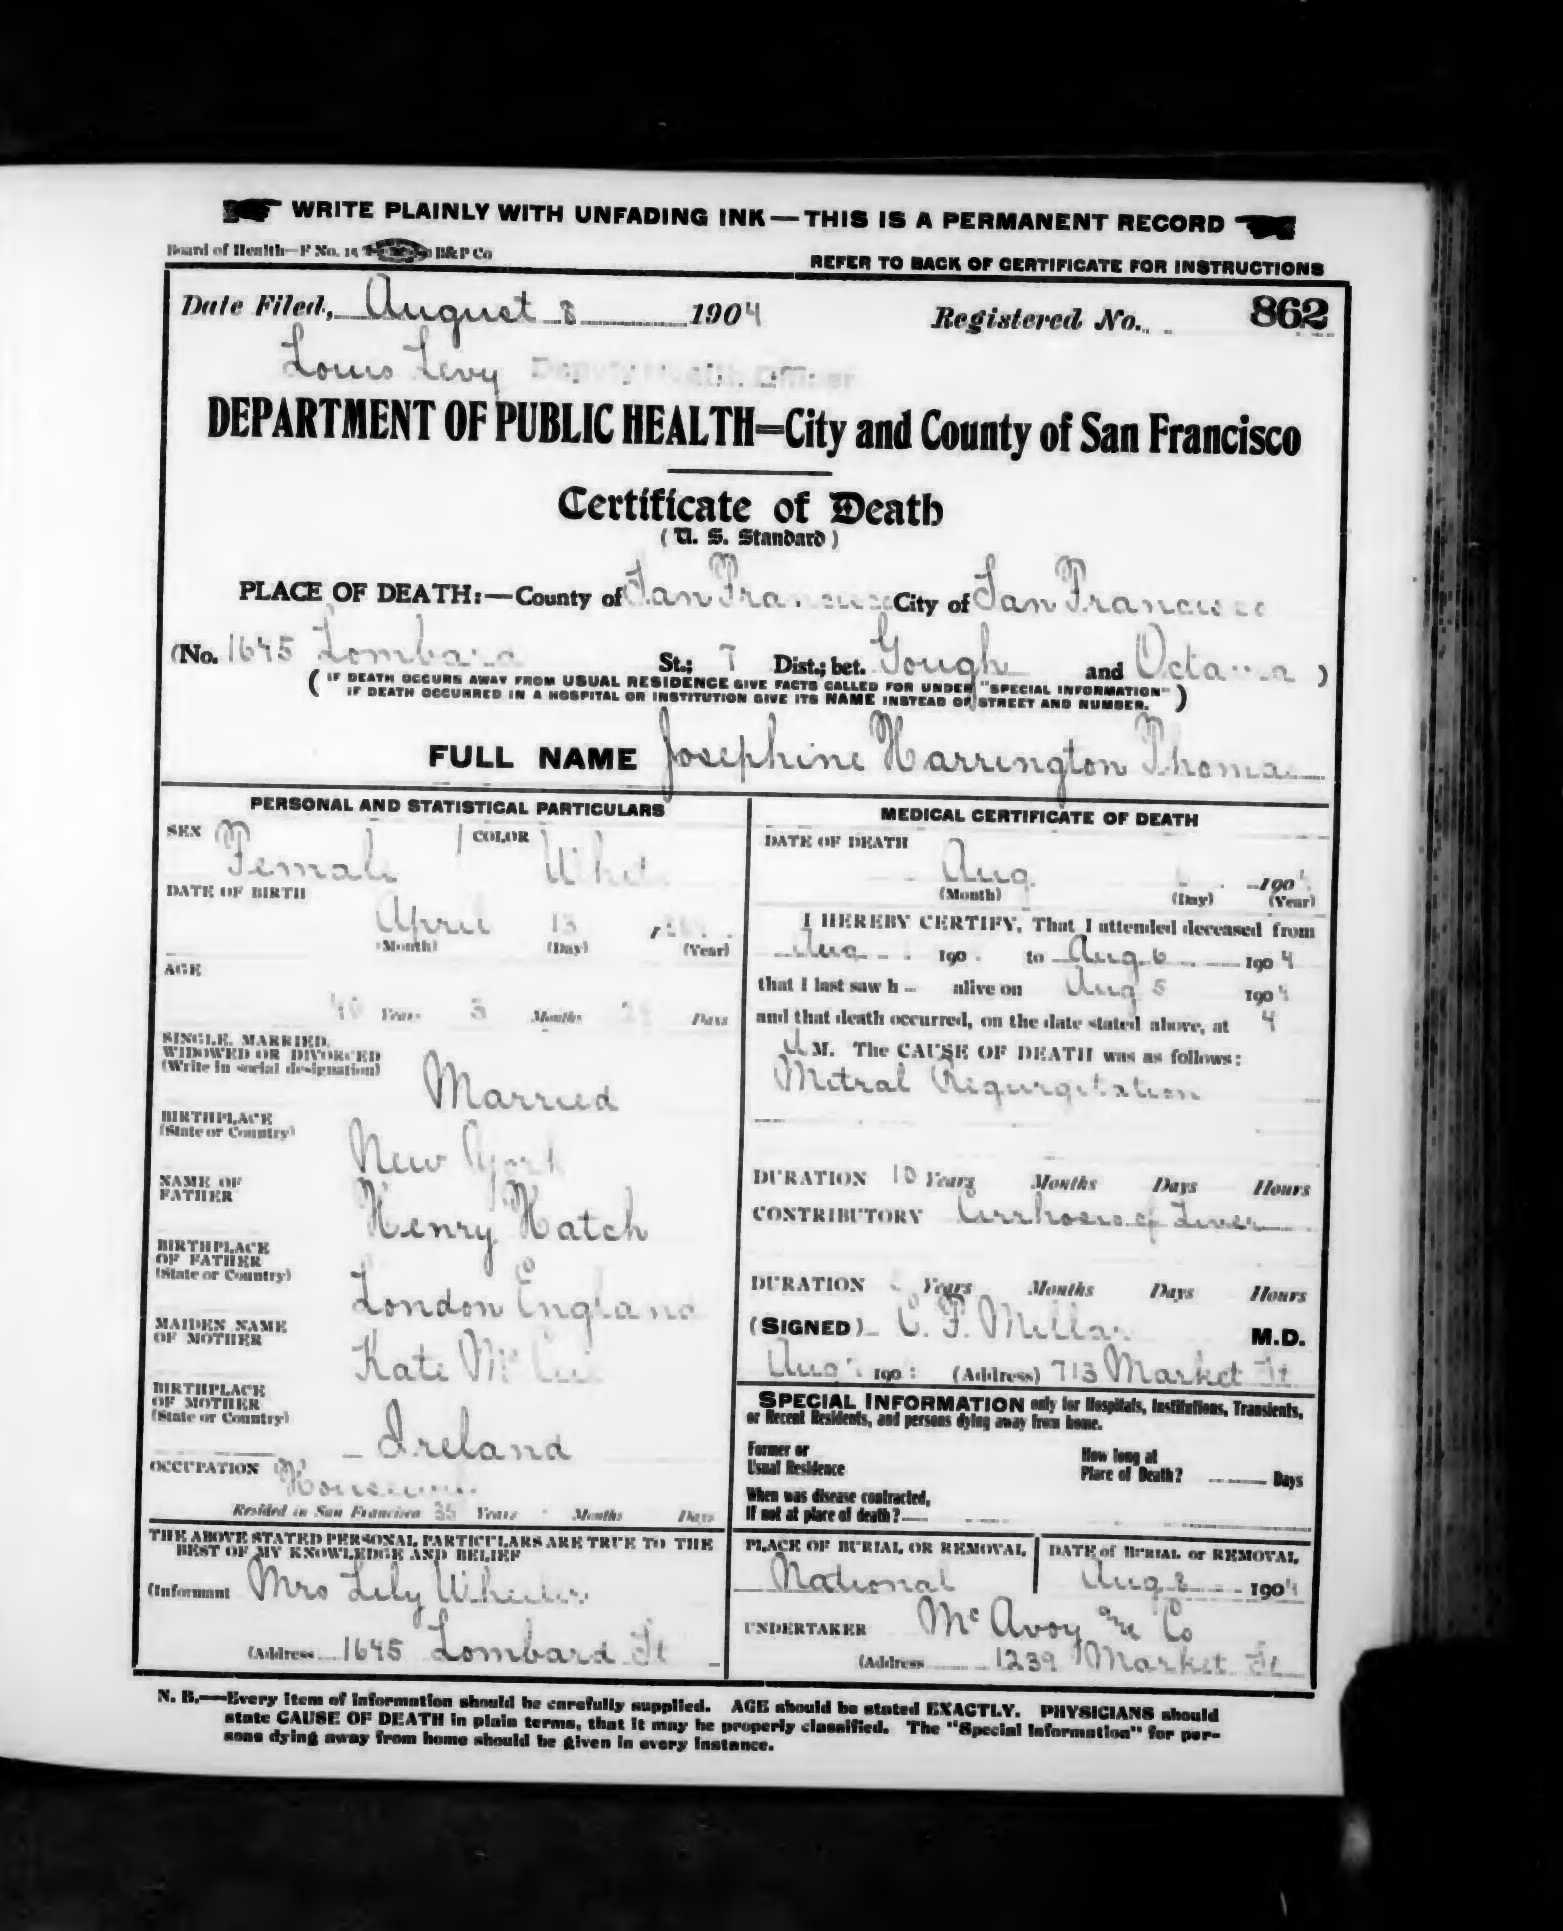 WRITE PLAINLY WITH UNFADING INK — THIS IS A PERMANENT RECORD
Board of Health—F No. 15 B&P Co
REFER TO BACK OF CERTIFICATE FOR INSTRUCTIONS
Date Filed, August 8 1904 Registered No. 862
Louis Levy Deputy Health Officer
DEPARTMENT OF PUBLIC HEALTH=City and County of San Francisco
Certificate of Death
(U. S. Standard)
PLACE OF DEATH:—County of San Francisco City of San Francisco
(No. 1645 Lombard St.; 7 Dist.; bet. Gough and Octavia )
( IF DEATH OCCURS AWAY FROM USUAL RESIDENCE GIVE FACTS CALLED FOR UNDER "SPECIAL INFORMATION"
IF DEATH OCCURRED IN A HOSPITAL OR INSTITUTION GIVE ITS NAME INSTEAD OF STREET AND NUMBER. )
FULL NAME Josephine Harrington Thomas
PERSONAL AND STATISTICAL PARTICULARS
SEX Female COLOR White
DATE OF BIRTH
April 13
(Month) (Day) (Year)
AGE
40 Years 3 Months Days
SINGLE, MARRIED,
WIDOWED OR DIVORCED
(Write in social designation)
Married
BIRTHPLACE
(State or Country)
New York
NAME OF
FATHER
Henry Hatch
BIRTHPLACE
OF FATHER
(State or Country)
London England
MAIDEN NAME
OF MOTHER
Kate Mc
BIRTHPLACE
OF MOTHER
(State or Country)
Ireland
OCCUPATION Housewife
Resided in San Francisco 35 Years Months Days
THE ABOVE STATED PERSONAL PARTICULARS ARE TRUE TO THE
BEST OF MY KNOWLEDGE AND BELIEF
(Informant Mrs Lily Wheeler
(Address 1645 Lombard St
MEDICAL CERTIFICATE OF DEATH
DATE OF DEATH
Aug 6 1904
(Month) (Day) (Year)
I HEREBY CERTIFY, That I attended deceased from
Aug 190 to Aug 6 1904
that I last saw h alive on Aug 5 1904
and that death occurred, on the date stated above, at 4
a M. The CAUSE OF DEATH was as follows:
Mitral Regurgitation
DURATION 10 Years Months Days Hours
CONTRIBUTORY Cirrhosis of Liver
DURATION Years Months Days Hours
(SIGNED) C. F. Millar M.D.
Aug 190 (Address) 713 Market St
SPECIAL INFORMATION only for Hospitals, Institutions, Transients,
or Recent Residents, and persons dying away from home.
Former or
Usual Residence
How long at
Place of Death? Days
When was disease contracted,
If not at place of death?
PLACE OF BURIAL OR REMOVAL
National
DATE of BURIAL or REMOVAL
Aug 8 1904
UNDERTAKER McAvoy & Co
(Address 1239 Market St
N. B.—Every item of information should be carefully supplied. AGE should be stated EXACTLY. PHYSICIANS should
state CAUSE OF DEATH in plain terms, that it may be properly classified. The "Special Information" for per-
sons dying away from home should be given in every instance.